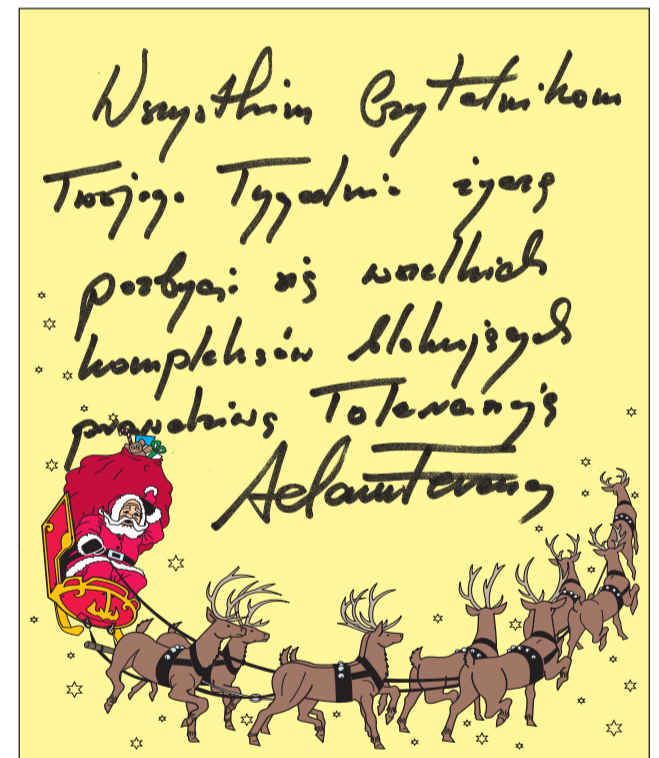 Wszystkim Czytelnikom
Twojego Tygodnia życzę
pozbycia się wszelkich
kompleksów blokujących
prawdziwą Tolerancję
Adam Ferency